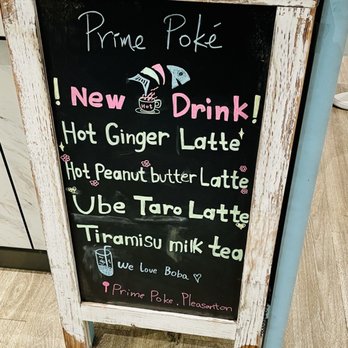 Prime Poké
! New Drink!
HOT
Hot Ginger Latte
Hot Peanut butter Latte
Ube Taro Latte
Tiramisu milk tea
We Love Boba
Prime Poke. Pleasanton